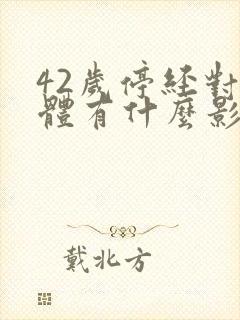 42歲停經對
體有什麼影
戴北方